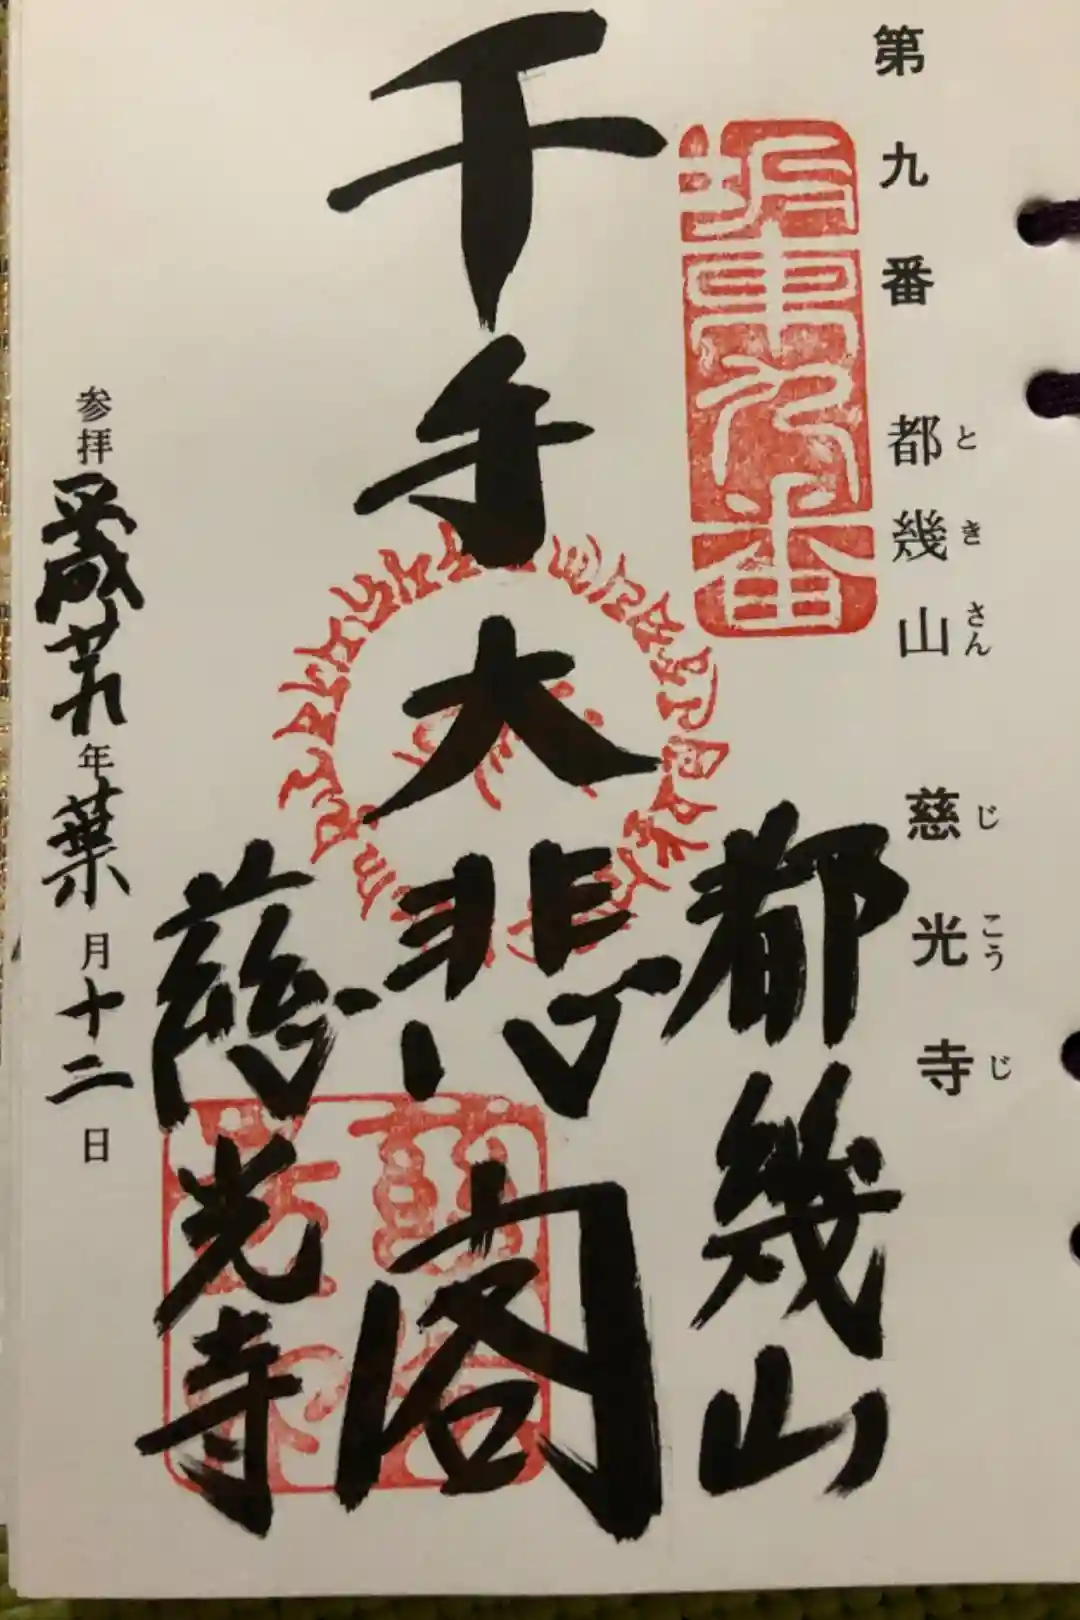 第九番 都幾山 慈光寺
ときさん じこうじ
坂東九番
都幾山
千手大悲閣
慈光寺
参拝 平成廿九年葉月十二日